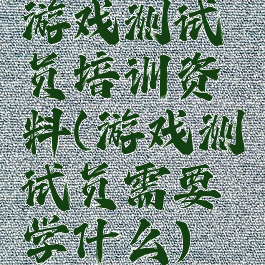 游戏测试
员培训资
料(游戏测
试员需要
学什么)